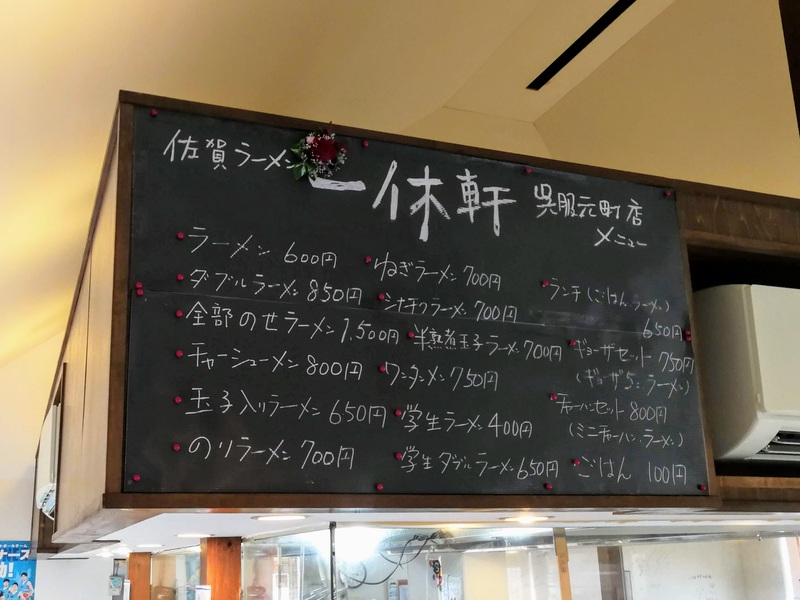 佐賀ラーメン 一休軒 呉服元町店
メニュー
ラーメン 600円
ダブルラーメン 850円
全部のせラーメン 1,500円
チャーシューメン 800円
玉子入りラーメン 650円
のりラーメン 700円
ねぎラーメン 700円
シナチクラーメン 700円
半熟煮玉子ラーメン 700円
ワンタンメン 750円
学生ラーメン 400円
学生ダブルラーメン 650円
ランチ (ごはん、ラーメン)
650円
ギョーザセット 750円
(ギョーザ5コ、ラーメン)
チャーハンセット 800円
(ミニチャーハン、ラーメン)
ごはん 100円